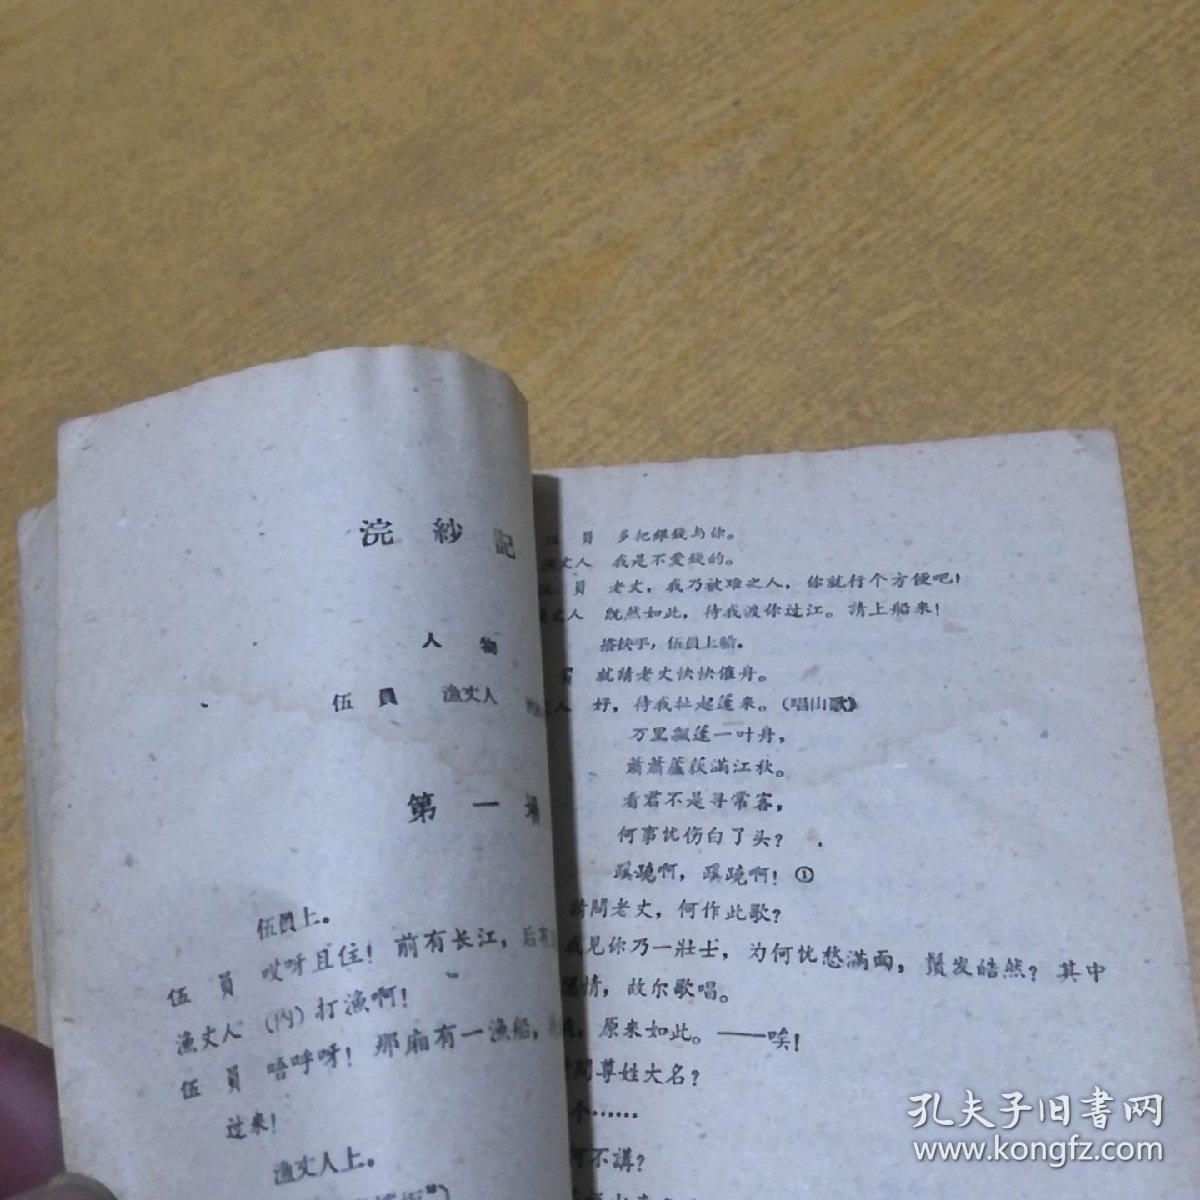 浣紗記
人物
伍員 漁丈人
第一場
伍員上。
伍員 哎呀且住！前有长江，后有
漁丈人 （內）打漁啊！
伍員 唔呼呀！那廂有一漁船，
过来！
漁丈人上。
伍員 多把銀錢与你。
漁丈人 我是不爱錢的。
伍員 老丈，我乃被难之人，你就行个方便吧！
漁丈人 既然如此，待我渡你过江。請上船来！
搭扶手，伍員上船。
就請老丈快快催舟。
丈人 好，待我扯起蓬来。（唱山歌）
万里飘蓬一叶舟，
蕭蕭蘆荻滿江秋。
看君不是寻常客，
何事忧伤白了头？
蹊蹺啊，蹊蹺啊！①
請問老丈，何作此歌？
我见你乃一壯士，为何忧愁滿面，鬚发皓然？其中
情，故尔歌唱。
，原来如此。——唉！
問尊姓大名？
个……
何不講？
孔夫子旧书网
www.kongfz.com